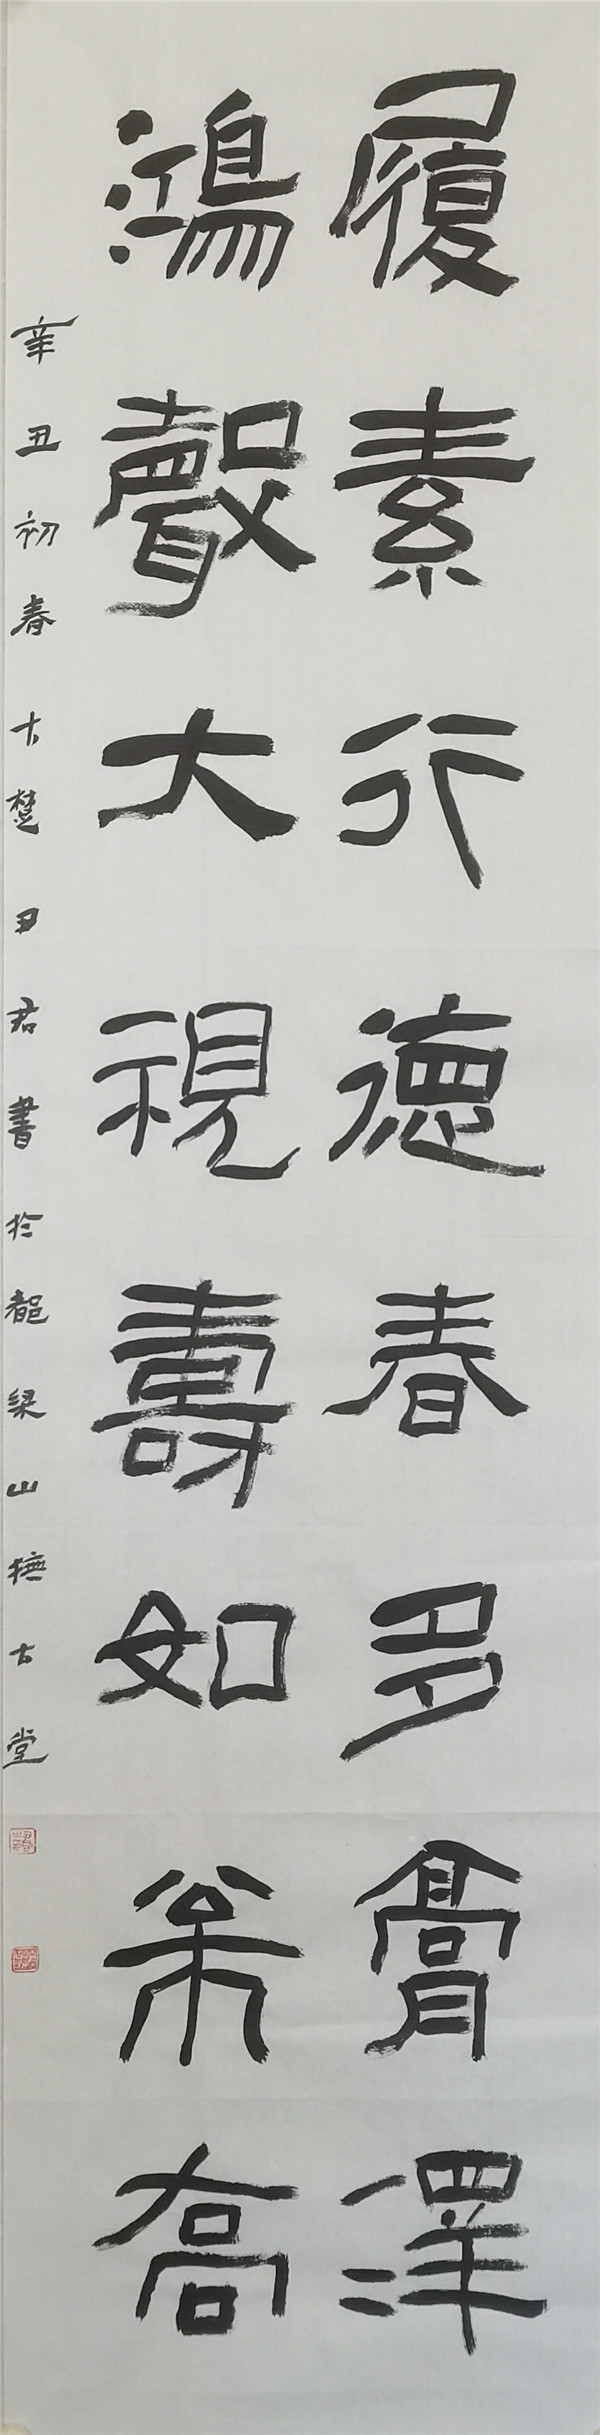 履素行德春多膏澤
鴻聲大視壽如枀高
辛丑初春古楚尹君書於都梁山撫古堂